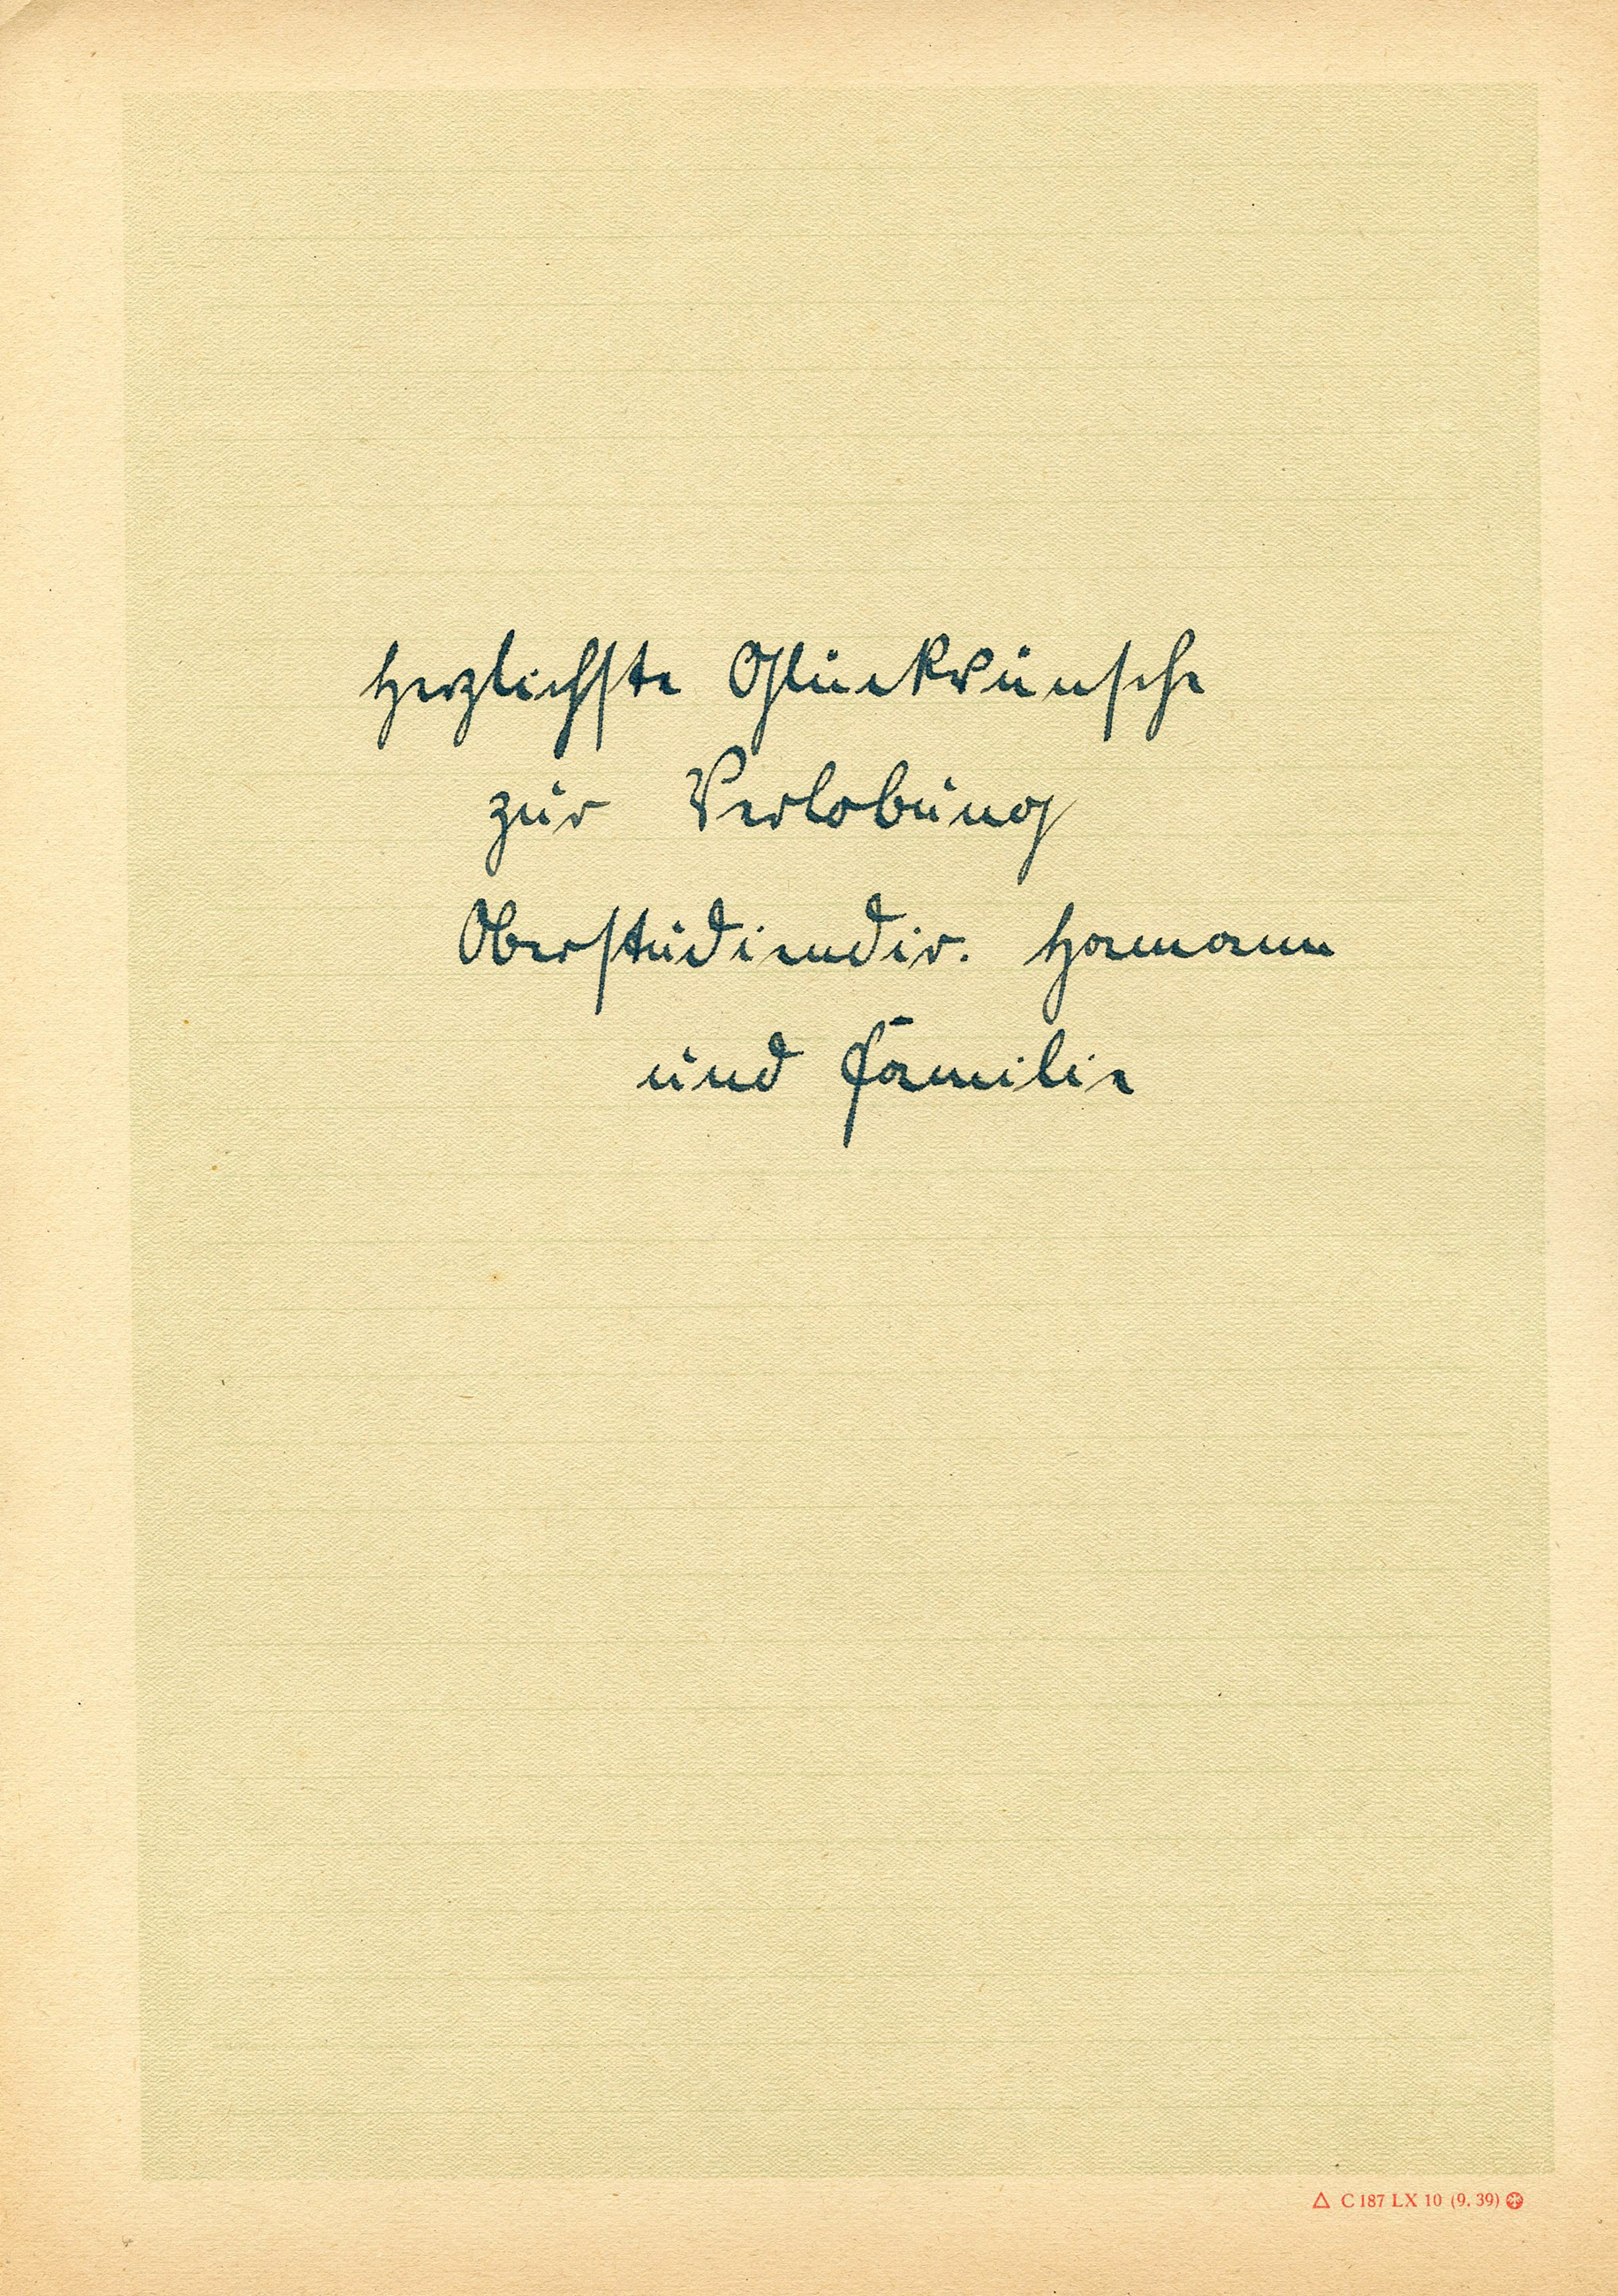 Herzlichste Glückwünsche
zur Verlobung
Oberstudiendir. Hamann
und Familie
△ C 187 LX 10 (9. 39)